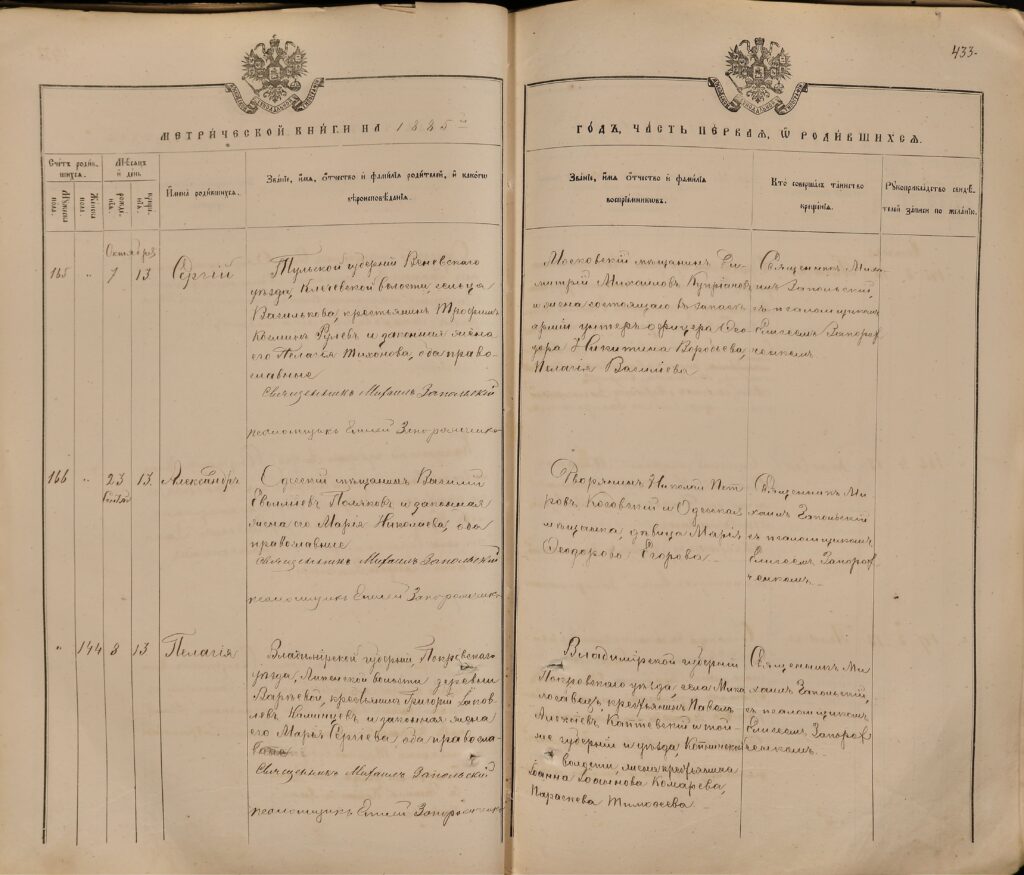 433.
МЕТРИЧЕСКОЙ КНИГИ НА 1885 й
ГОДЪ, ЧАСТЬ ПЕРВАЯ, Ѡ РОДИВШИХСѦ.
Счетъ родившихсѧ.
Мужеска пола.
Женска пола.
Мѣсѧцъ и день
рожденіѧ.
крещеніѧ.
Имена родившихсѧ.
Званіе, имѧ, ѿчество и фамиліѧ родителей, и какогѡ
вѣроисповѣданіѧ.
Званіе, имѧ, ѿчество и фамиліѧ
воспріемникѡвъ.
Кто совершалъ таинство
крещеніѧ.
Рукоприкладство свидѣтелей записи по желанію.
Октября
165 „ 7 13 Сергій
Тульской губерніи Веневского
уѣзда, волости, сельца
Василькова, крестьянинъ Трофимъ
Косминъ и законная жена
его Пелагія Тихонова, оба православные
Священникъ Михаилъ Запольскій
псаломщикъ Елисей Запорожченко
Московскій мѣщанинъ Димитрій Михаиловъ Купріановъ
и жена состоящаго въ запасѣ
арміи унтеръ-офицера Ѳеодора Никитина Воробьева,
Пелагія Василіева
Священникъ Михаилъ Запольскій,
съ псаломщикомъ
Елисеемъ Запорожченкомъ.
166 „ 23 13. Александръ
Сентяб
Одесскій мѣщанинъ Василій
Поляковъ и законная
жена его Марія Николаева, оба
православные
Священникъ Михаилъ Запольскій
псаломщикъ Елисей Запорожченко
Дворянинъ Николай Петровъ Косовскій и Одесская
мѣщанка, дѣвица Марія
Ѳеодорова Егорова
Священникъ Михаилъ Запольскій
съ псаломщикомъ
Елисеемъ Запорожченкомъ.
„ 144 8 13 Пелагія
Владимірской губерніи, Покровскаго
уѣзда, волости деревни
крестьянинъ Григорій Іаковлевъ и законная жена
его Марія Сергіева оба православные
Священникъ Михаилъ Запольскій
псаломщикъ Елисей Запорожченко
Владимірской губерніи
Покровскаго уѣзда, села
крестьянинъ Павелъ
Алексіевъ и той же губерніи и уѣзда,
волости, жена крестьянина
Іоанна Комарева,
Параскева Тимоѳеева
Священникъ Михаилъ Запольскій,
съ псаломщикомъ
Елисеемъ Запорожченкомъ.